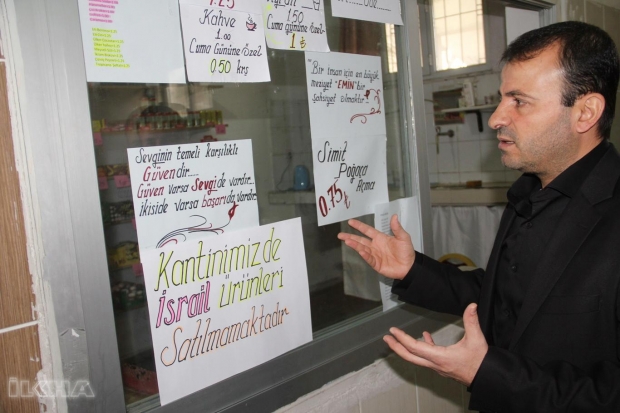 1.25
Kahve 1.00
Cuma Gününe Özel
0.50 krş
1.50
Cuma Gününe Özel
1 ₺
"Bir insan için en büyük
meziyet "EMİN" bir
şahsiyet olmaktır."
Simit
Poğaça
Açma
0.75 ₺
Sevginin temeli karşılıklı
Güvendir....
Güven varsa Sevgi de vardır...
ikiside varsa başarı da vardır.
Kantinimizde
israil ürünleri
Satılmamaktadır
İLKHA